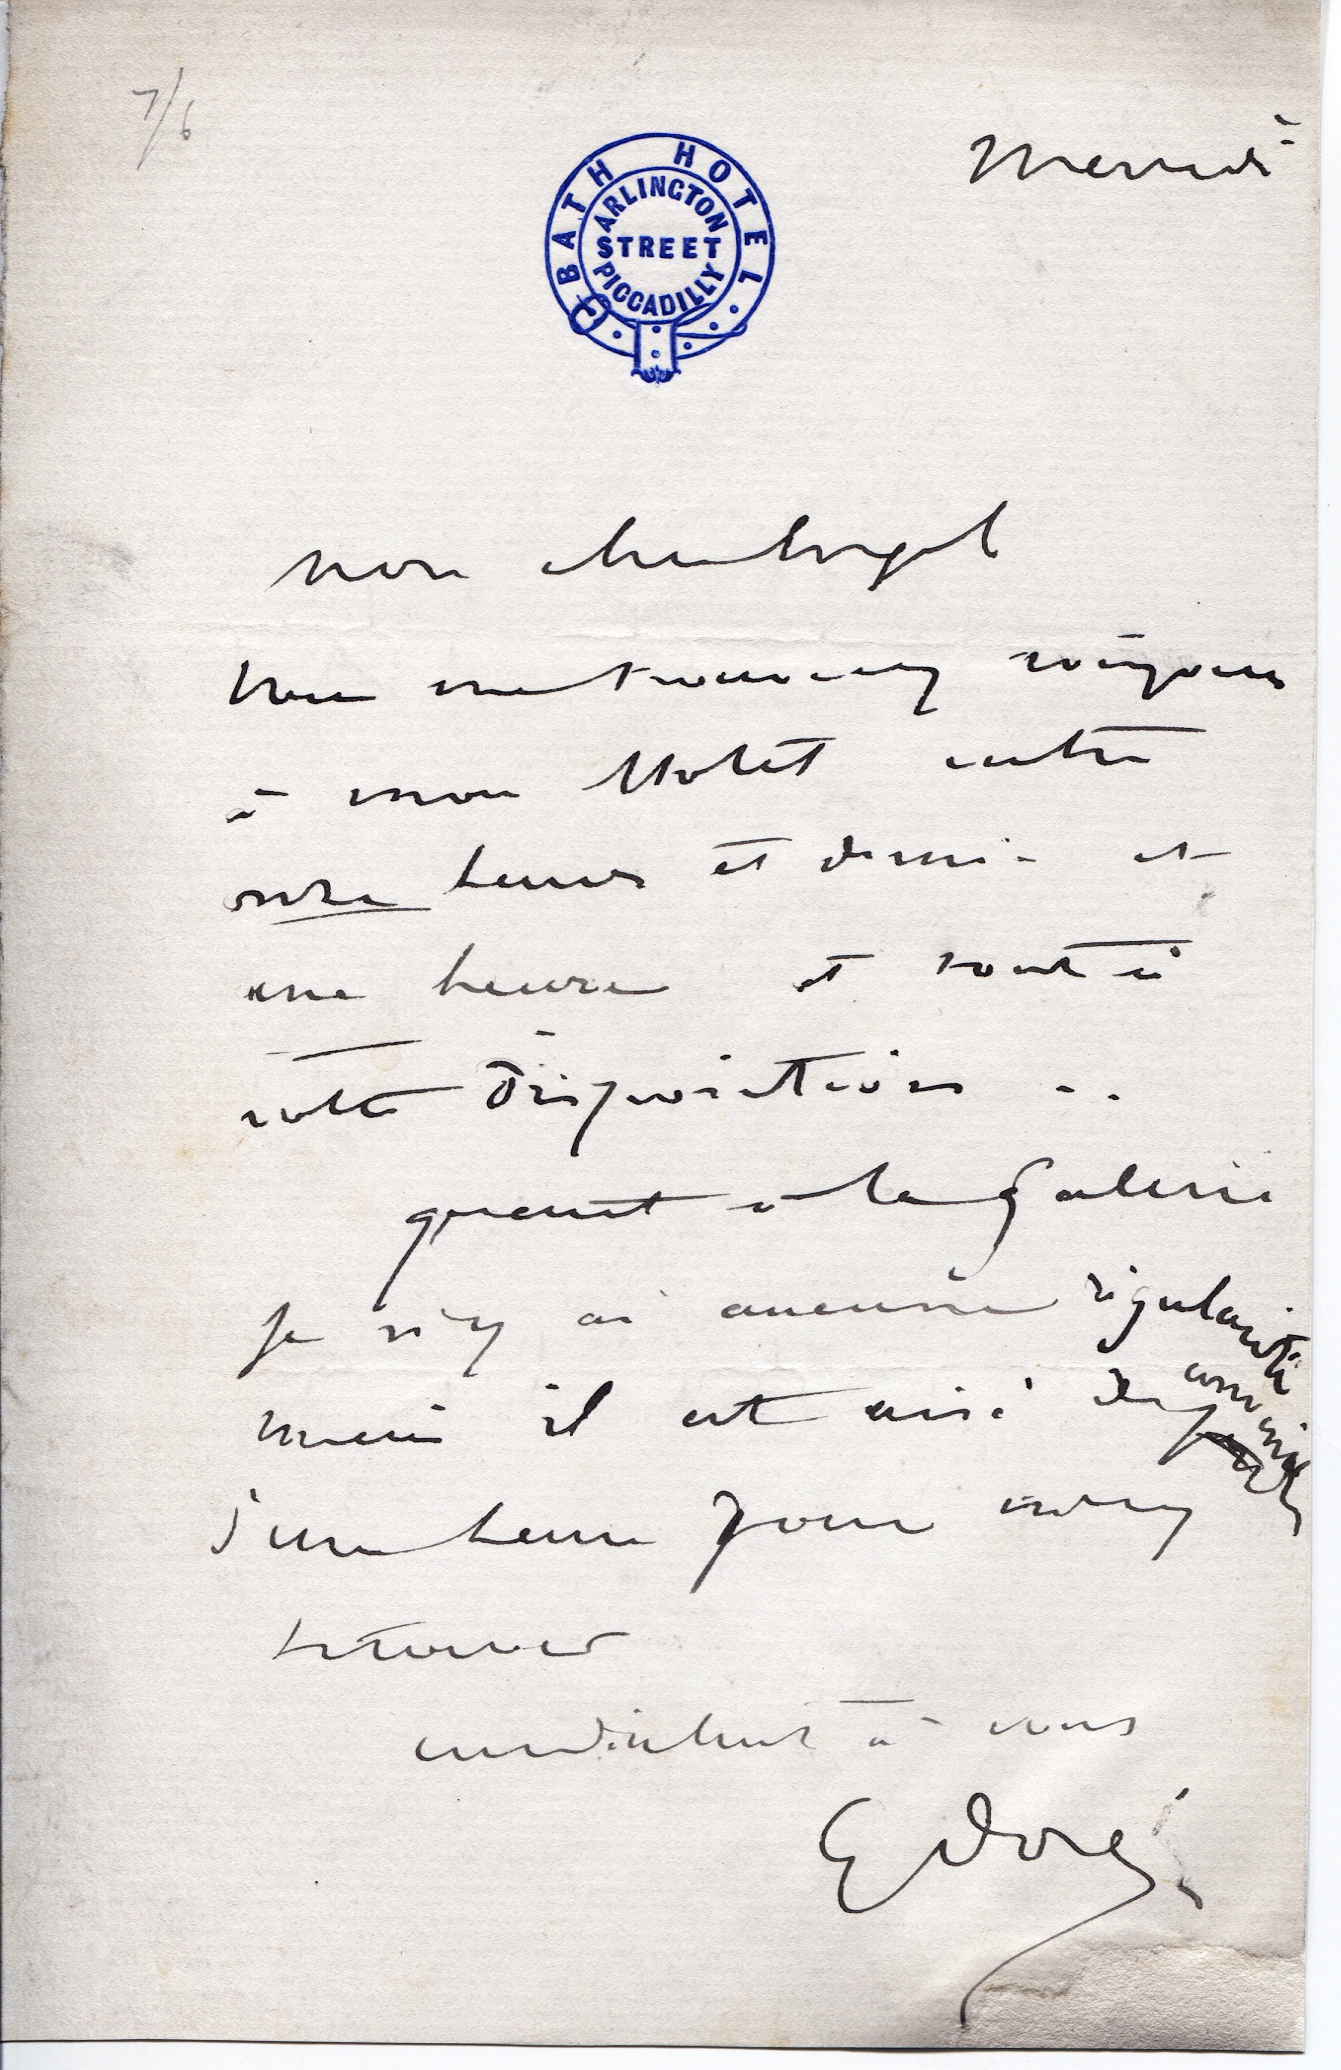 7/6
BATH HOTEL
ARLINGTON
STREET
PICCADILLY
Mercredi
Mon cher
Vous me trouverez toujours
à mon Hotel entre
onze heures et demie et
une heure et tout à
votre disposition ..
quant à la Galerie
je n'y ai aucune régularité
mais il est aisé de convenir
d'une heure pour m'y
trouver
cordialement à vous
G Doré